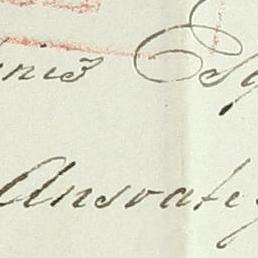 nis Esq
Answate